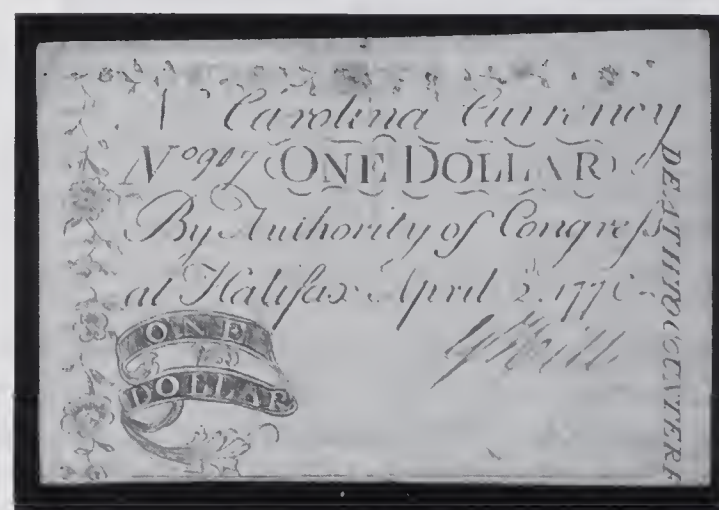 N Carolina Currency
No 907 ONE DOLLAR
By Authority of Congress
at Halifax April 2, 1776
ONE
DOLLAR
DEATH TO COUNTERF